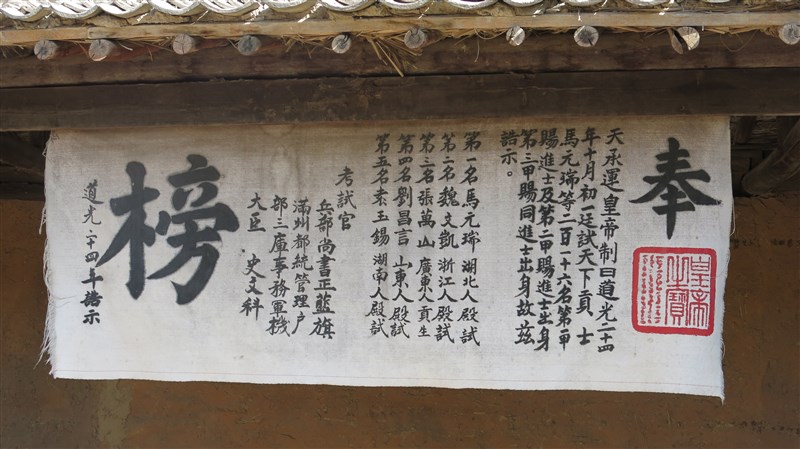 奉
皇帝之寶
天承運皇帝制曰道光二十四
年十月初一廷試天下貢士
馬元瑞等二百一十六名第一甲
賜進士及第二甲賜進士出身
第三甲賜同進士出身故茲
誥示。
第一名馬元瑞湖北人殿試
第二名魏文凱浙江人殿試
第三名張萬山廣東人貢生
第四名劉昌言山東人殿試
第五名袁玉錫湖南人殿試
考試官
兵部尚書正藍旗
滿州都統管理户
部三庫事務軍機
大臣史文科
榜
道光二十四年誥示